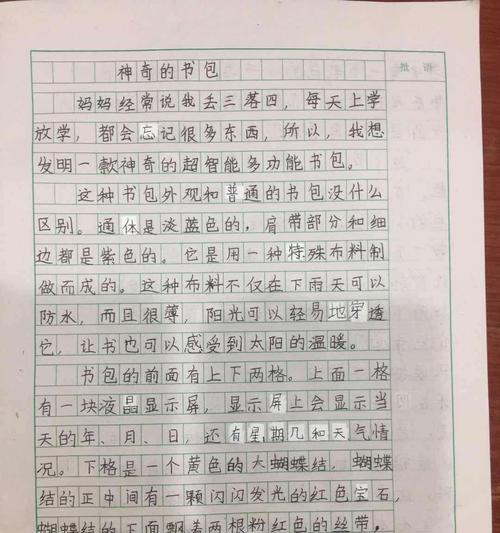 批语
神奇的书包
妈妈经常说我丢三落四，每天上学
放学，都会忘记很多东西，所以，我想
发明一款神奇的超智能多功能书包。
这种书包外观和普通的书包没什么
区别。通体是淡蓝色的，肩带部分和细
边都是紫色的。它是用一种特殊布料制
做而成的。这种布料不仅在下雨天可以
防水，而且很薄，阳光可以轻易地穿透
它，让书包也可以感受到太阳的温暖。
书包的前面有上下两格。上面一格
有一块液晶显示屏，显示屏上会显示当
天的年、月、日，还有星期几和天气情
况。下格是一个黄色的大蝴蝶结，蝴蝶
结的正中间有一颗闪闪发光的红色宝石，
蝴蝶结的下面飘着两根粉红色的丝带，